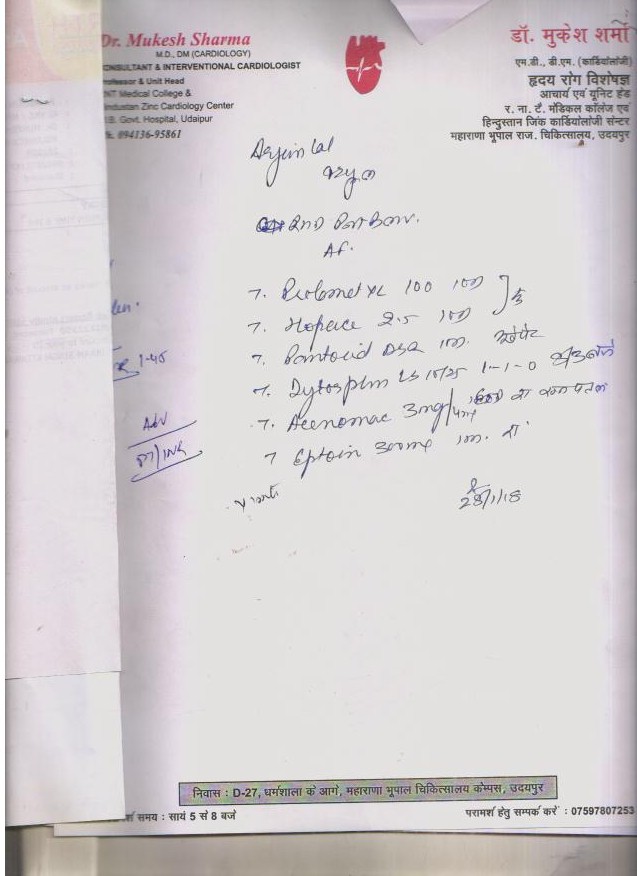 Dr. Mukesh Sharma
M.D., DM (CARDIOLOGY)
CONSULTANT & INTERVENTIONAL CARDIOLOGIST
Professor & Unit Head
RNT Medical College &
Hindustan Zinc Cardiology Center
M.B. Govt. Hospital, Udaipur
094136-95861
डॉ. मुकेश शर्मा
एम.डी., डी.एम. (कार्डियोलॉजी)
हृदय रोग विशेषज्ञ
आचार्य एवं यूनिट हैड
र. ना. टै. मेडिकल कॉलेज एवं
हिन्दुस्तान जिंक कार्डियोलॉजी सेन्टर
महाराणा भूपाल राज. चिकित्सालय, उदयपुर
Arjun Lal
AF.
T. Prolomet XL 100 1OD
T. Hopace 2.5 1OD
T. Pantocid DSR 1OD
T. Dytor plus LS 10/25 1-1-0
T. Acenomac 3mg/4mg
T Eptoin 300mg
1.45
Adv
PT/INR
28/1/18
निवास : D-27, धर्मशाला के आगे, महाराणा भूपाल चिकित्सालय केम्पस, उदयपुर
समय : सायं 5 से 8 बजे
परामर्श हेतु सम्पर्क करें : 07597807253